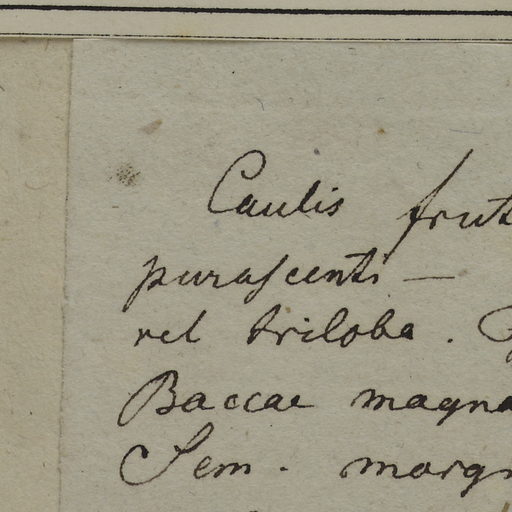 Caulis frut
purascenti —
vel triloba.
Baccae magna
Sem. margi